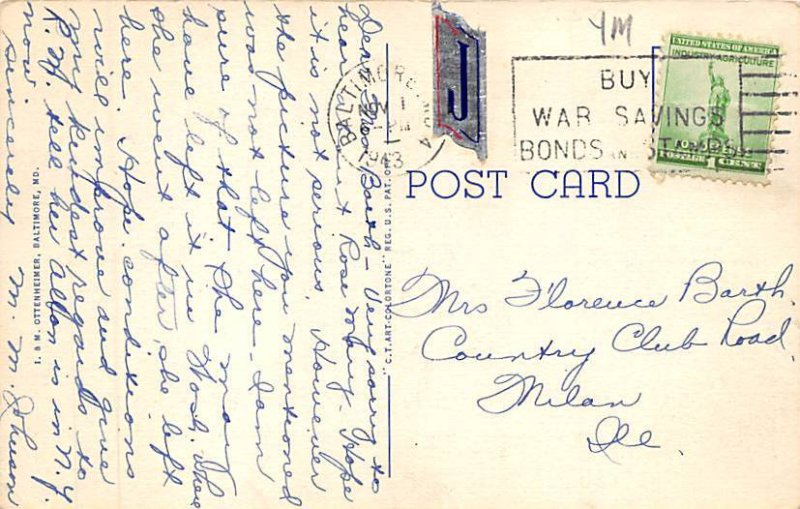 YM
BALTIMORE, MD. 4
NOV 1
PM
1943
BUY
WAR SAVINGS
BONDS AND STAMPS
UNITED STATES OF AMERICA
INDUSTRY AGRICULTURE
FOR DEFENSE
POSTAGE 1 CENT
POST CARD
Mrs Florence Barth.
Country Club Road.
Milan
Ill.
Dear Mrs Barth - Very sorry to
hear about Rose Mary - Hope
it is not serious. However
the picture you mentioned
was not left here - I am
sure of that She may
have left it in Wash. where
she went after she left
here. Hope conditions
will improve and give
my kindest regards to
R. M. tell her Alton is in N.Y.
now
Sincerely M. M. Johnson
I. & M. OTTENHEIMER, BALTIMORE, MD.
"C.T. ART-COLORTONE" REG. U.S. PAT. OFF.